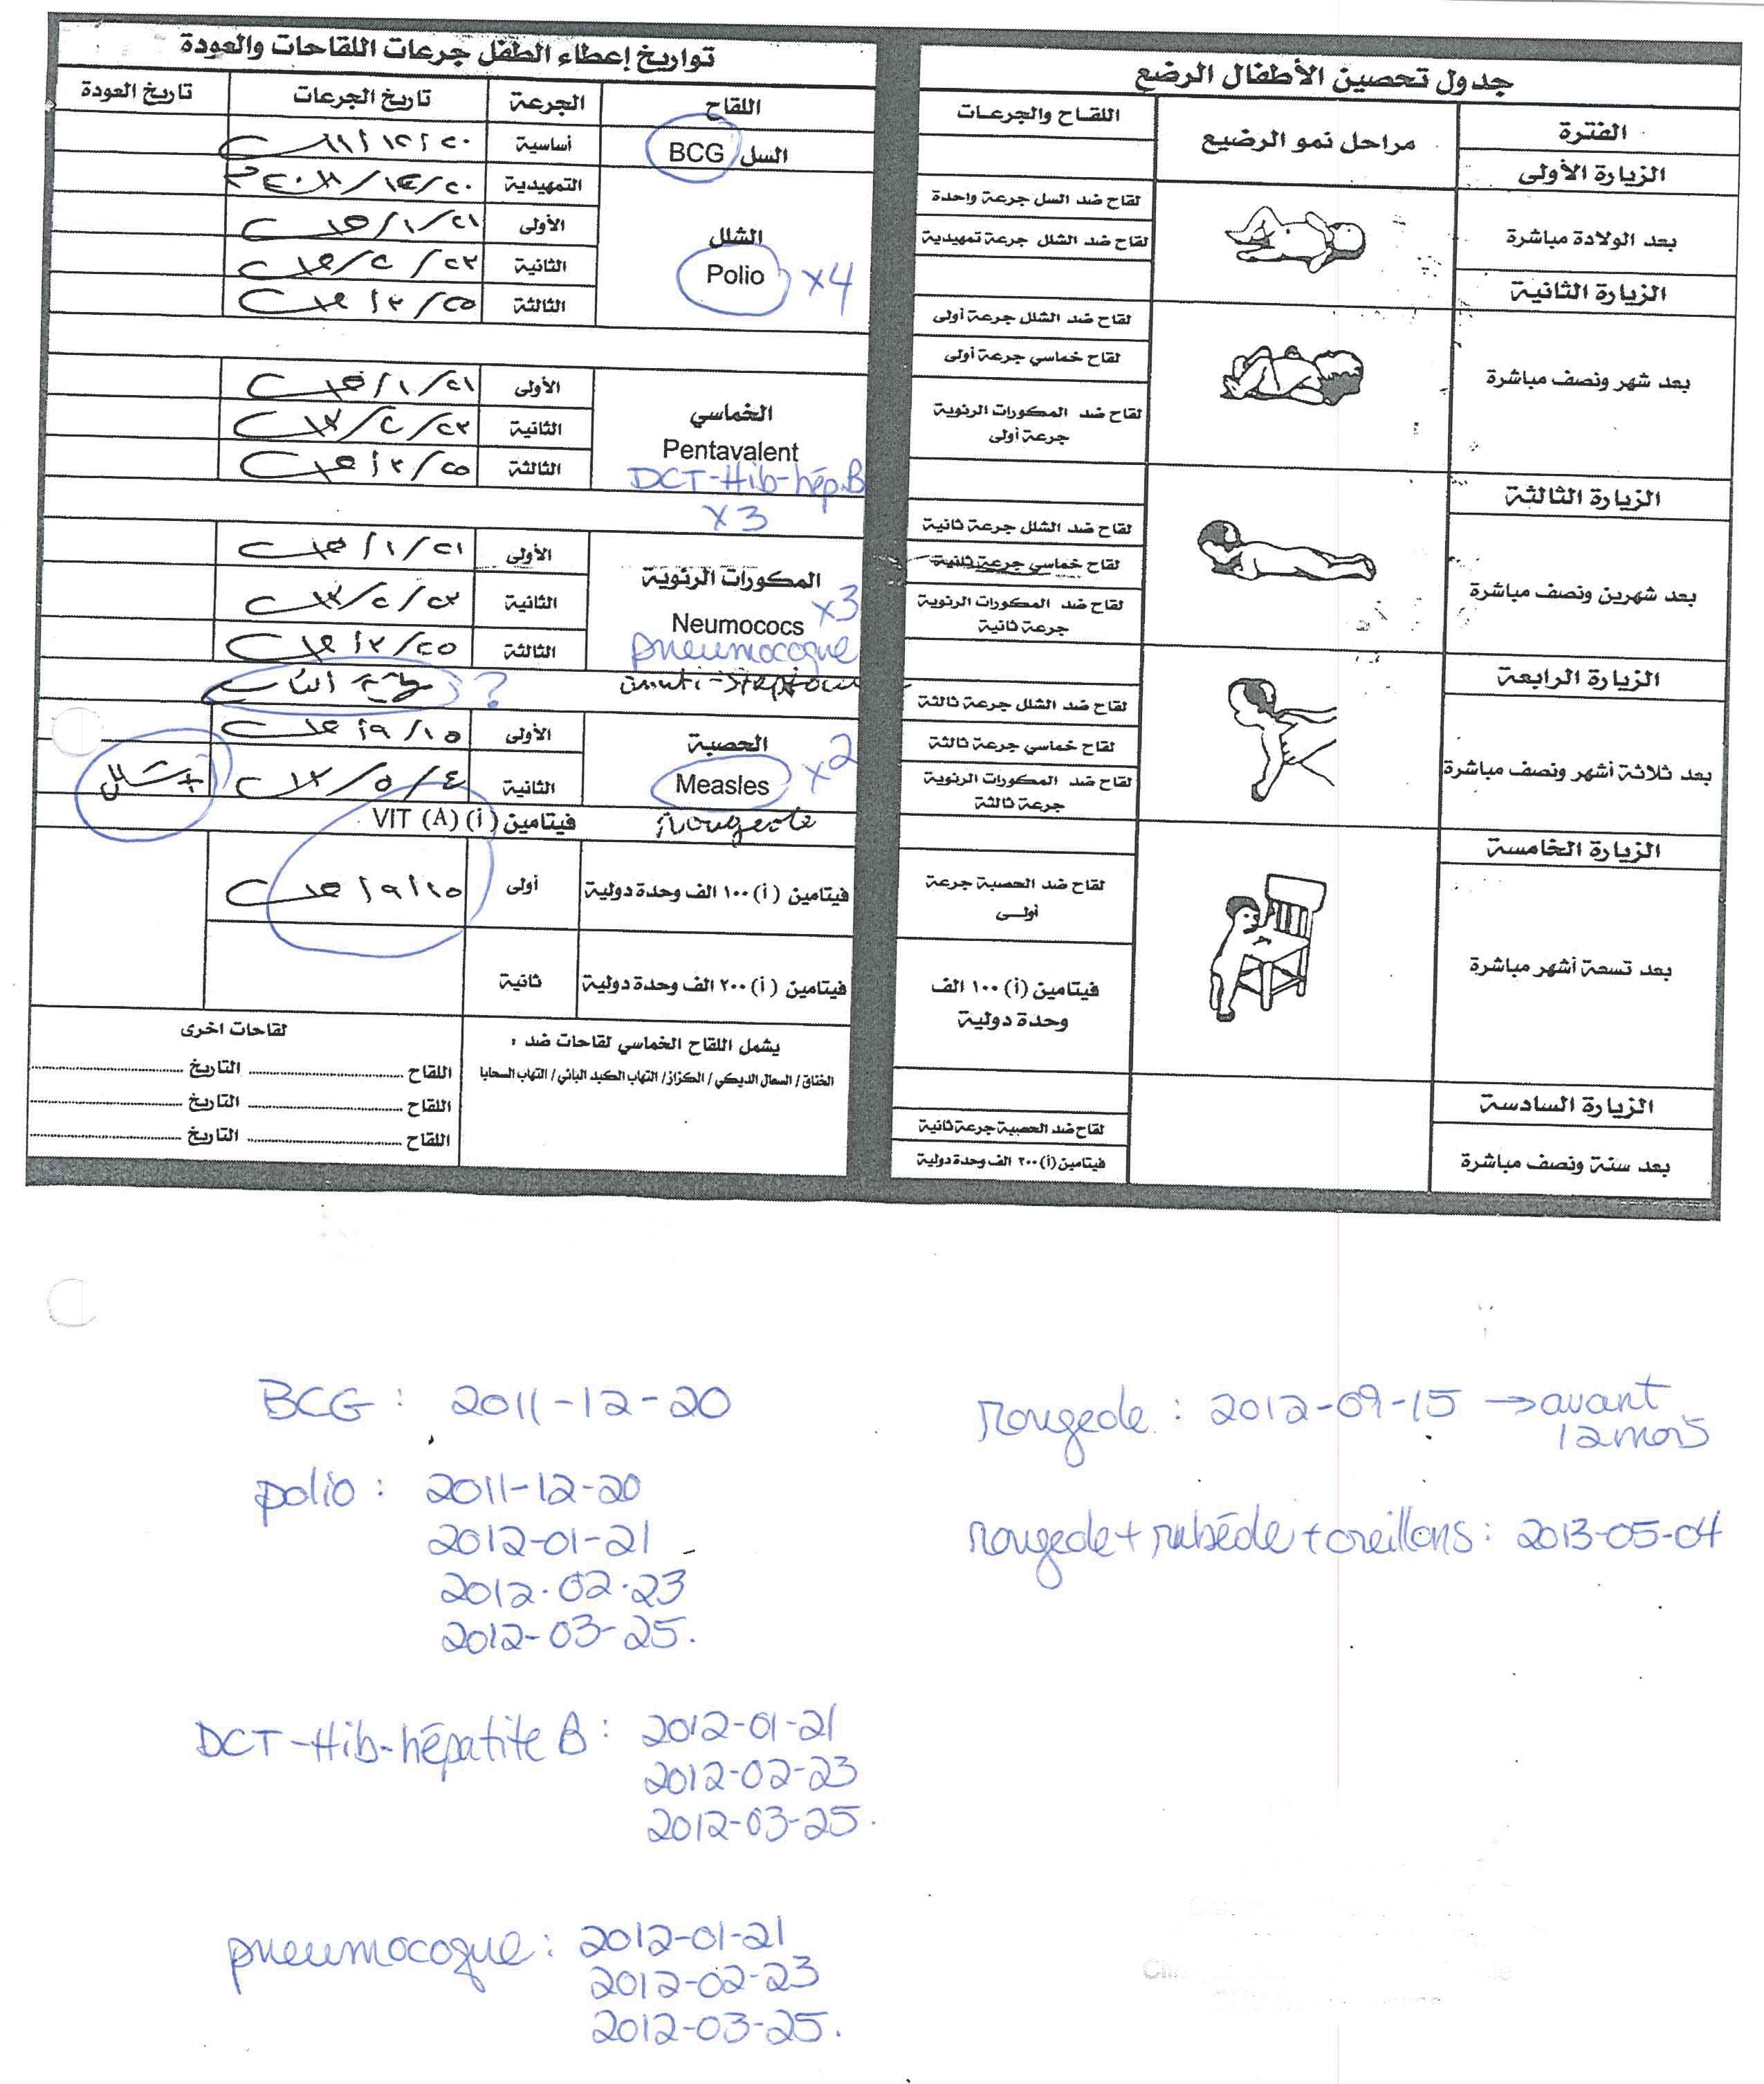 جدول تحصين الأطفال الرضع
الفترة
مراحل نمو الرضيع
اللقاح والجرعات
الزيارة الأولى
بعد الولادة مباشرة
لقاح ضد السل جرعة واحدة
لقاح ضد الشلل جرعة تمهيدية
الزيارة الثانية
بعد شهر ونصف مباشرة
لقاح ضد الشلل جرعة أولى
لقاح خماسي جرعة أولى
لقاح ضد المكورات الرئوية
جرعة أولى
الزيارة الثالثة
بعد شهرين ونصف مباشرة
لقاح ضد الشلل جرعة ثانية
لقاح خماسي جرعة ثانية
لقاح ضد المكورات الرئوية
جرعة ثانية
الزيارة الرابعة
بعد ثلاثة أشهر ونصف مباشرة
لقاح ضد الشلل جرعة ثالثة
لقاح خماسي جرعة ثالثة
لقاح ضد المكورات الرئوية
جرعة ثالثة
الزيارة الخامسة
بعد تسعة أشهر مباشرة
لقاح ضد الحصبة جرعة
أولى
فيتامين (أ) ١٠٠ الف
وحدة دولية
الزيارة السادسة
بعد سنة ونصف مباشرة
لقاح ضد الحصبة جرعة ثانية
فيتامين (أ) ٢٠٠ الف وحدة دولية
تواريخ إعطاء الطفل جرعات اللقاحات والعودة
اللقاح الجرعة تاريخ الجرعات تاريخ العودة
السل BCG أساسية
الشلل
Polio x4
التمهيدية
الأولى
الثانية
الثالثة
الخماسي
Pentavalent
DCT-Hib-hép.B
x3
الأولى
الثانية
الثالثة
المكورات الرئوية
x3
Neumococs
pneumocoque
الأولى
الثانية
الثالثة
?
الحصبة
Measles x2
Rougeole
الأولى
الثانية
فيتامين (أ) VIT (A)
فيتامين (أ) ١٠٠ الف وحدة دولية أولى
فيتامين (أ) ٢٠٠ الف وحدة دولية ثانية
يشمل اللقاح الخماسي لقاحات ضد :
الخناق / السعال الديكي / الكزاز / التهاب الكبد البائي / التهاب السحايا
لقاحات اخرى
اللقاح ........ التاريخ ........
اللقاح ........ التاريخ ........
اللقاح ........ التاريخ ........
BCG : 2011-12-20
polio : 2011-12-20
2012-01-21
2012-02-23
2012-03-25.
DCT-Hib-hépatite B : 2012-01-21
2012-02-23
2012-03-25.
pneumocoque : 2012-01-21
2012-02-23
2012-03-25.
Rougeole : 2012-09-15 → avant
12 mois
rougeole + rubéole + oreillons : 2013-05-04